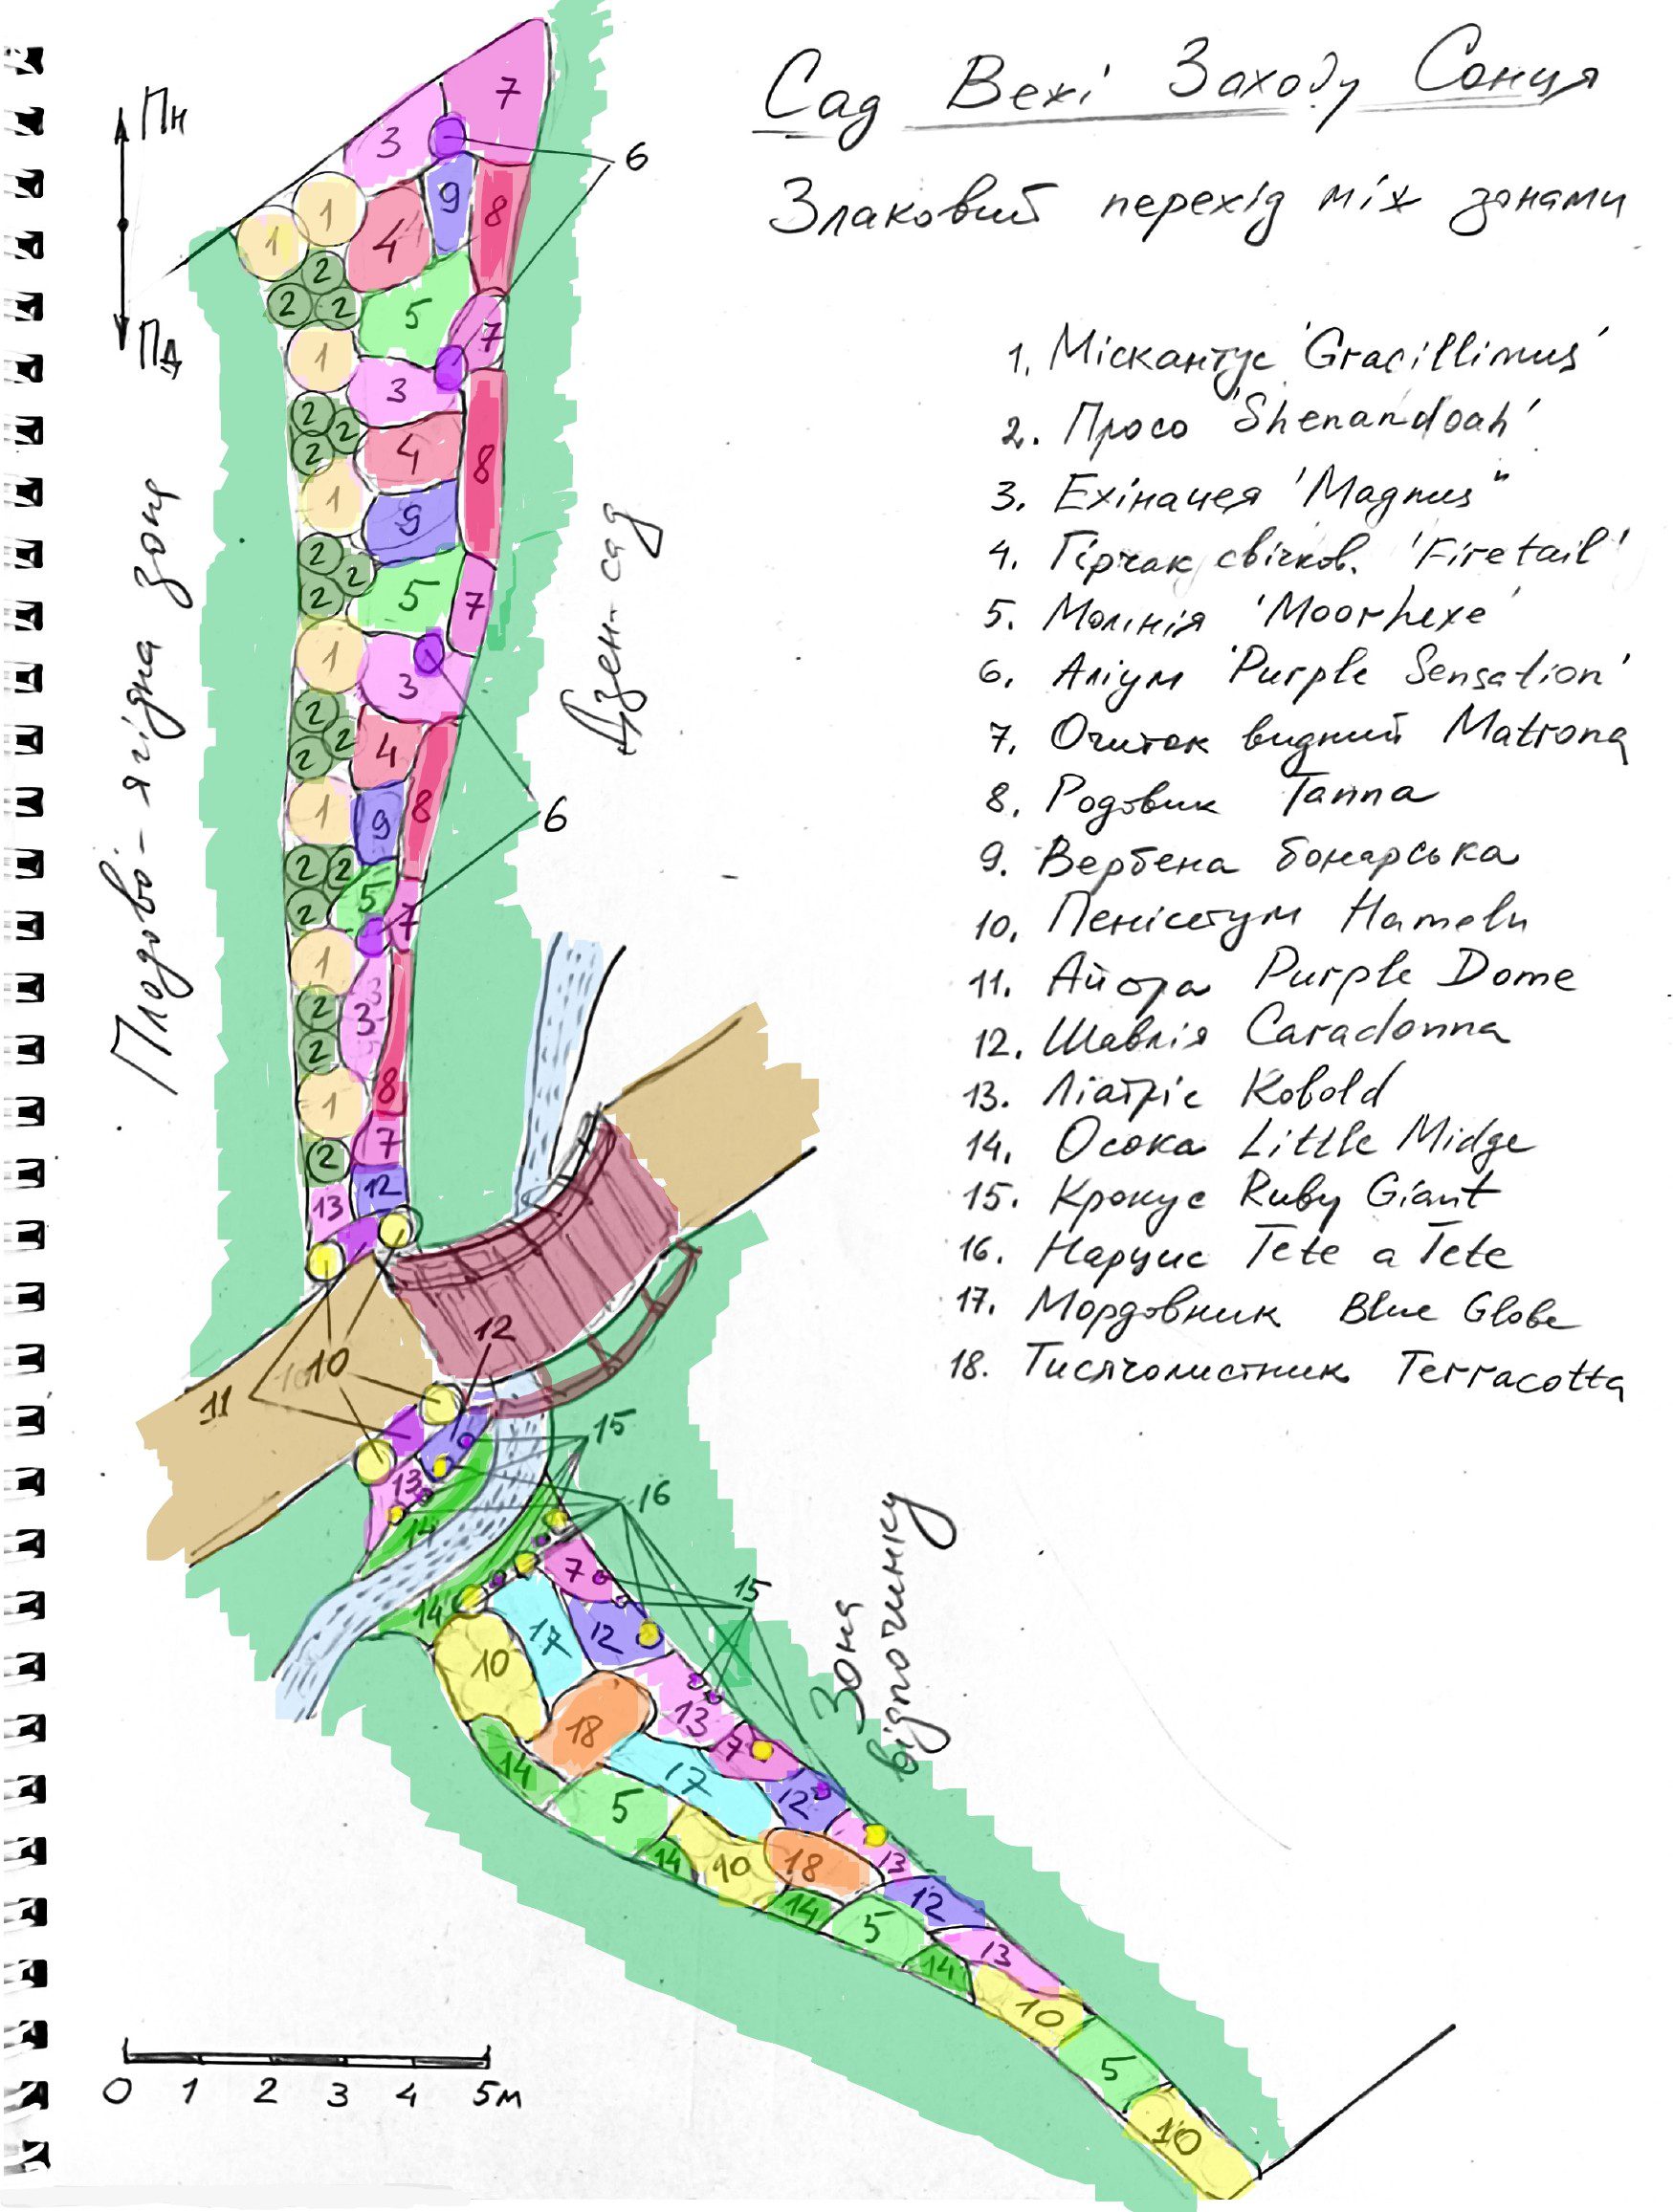 Сад Вежі Заходу Сонця
Злаковий перехід між зонами
Пн
Пд
Плодово-ягідна зона
Дзен-сад
Зона
відпочинку
1. Міскантус 'Gracillimus'
2. Просо 'Shenandoah'
3. Ехінацея 'Magnus"
4. Гірчак свічков. 'Firetail'
5. Молінія 'Moorhexe'
6. Аліум 'Purple Sensation'
7. Очиток видний Matrona
8. Родовик Tanna
9. Вербена бонарська
10. Пенісетум Hameln
11. Айстра Purple Dome
12. Шавлія Caradonna
13. Ліатріс Kobold
14. Осока Little Midge
15. Крокус Ruby Giant
16. Нарцис Tete a Tete
17. Мордовник Blue Globe
18. Тисячолистник Terracotta
7
3
6
1
9
8
1
4
2
2 2
5
7
1
3
2
2
2
4
8
1
9
2
2
2
5
7
1
3
2
2
2
4
1
9
8
6
2 2
5
2
7
1
2
3
2
1
8
7
2
12
13
12
10
11
15
13
16
14
7
15
14
17
12
10
13
18
7
14
17
12
5
13
14
10
18
12
14
5
13
14
10
5
10
0 1 2 3 4 5м